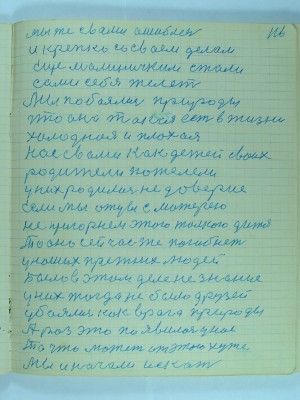 116
мы же с вами ошиблися
и крепко со своем делам
еще маленичкими стали
сами себя жалет
Мы побоялис природы
што она такая ест в жизни
холодная и плохая
нас с вами как детей своих
родители пожелели
у них родилис не доверие
если мы от
не этого дитя
То оно сейчас же погибнет
у наших прежних людей
Было в этом деле не знание
у них тогда не было друзей
убоялис как врага природы
А раз это появилос у нас
То что может от этого хуже
Мы и начали искат